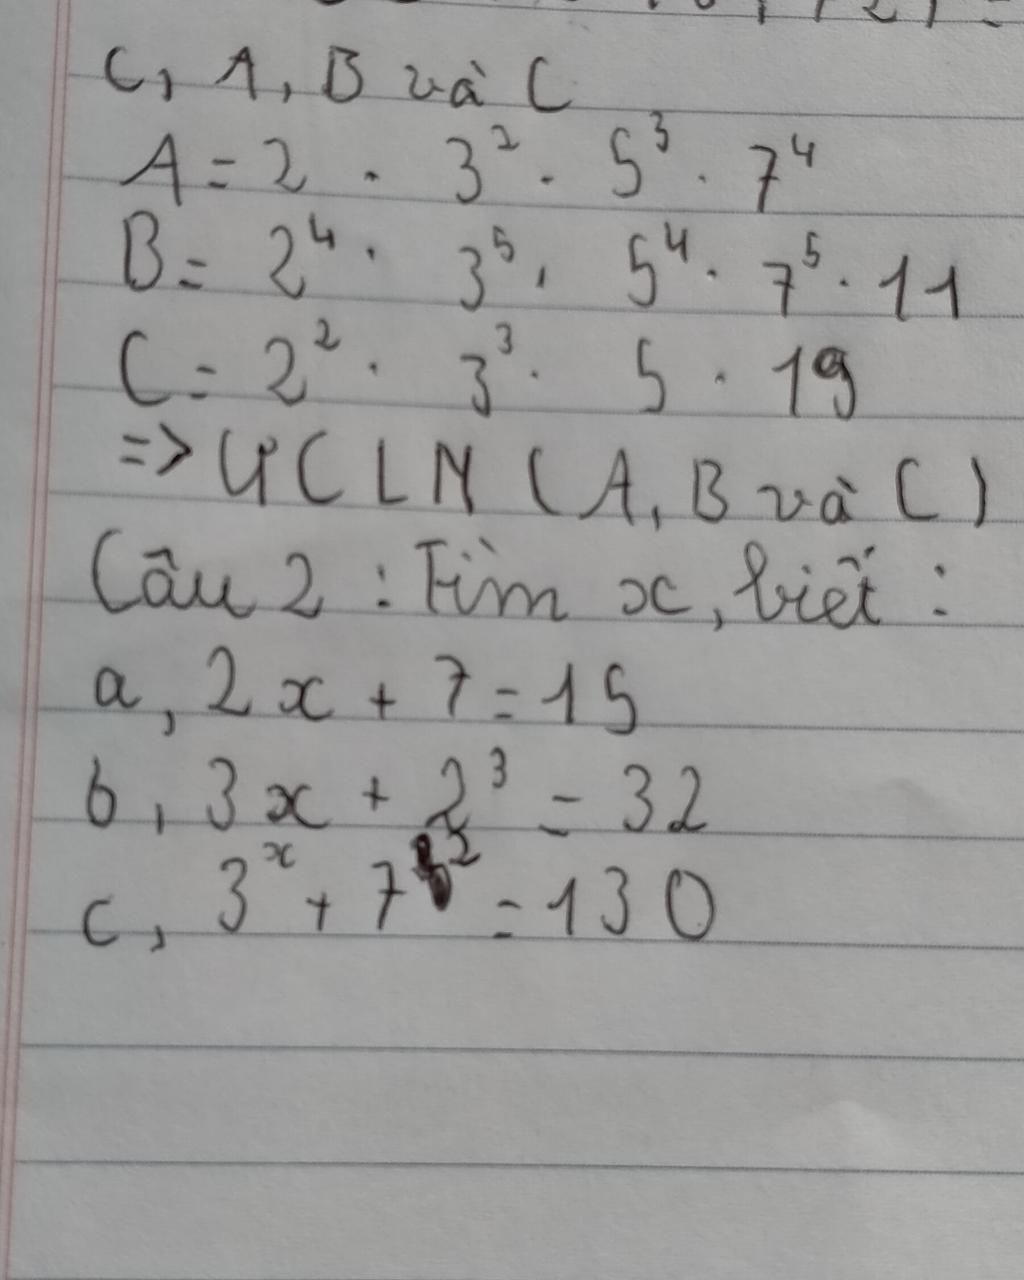 c, A, B và C
A = 2 . 3² . 5³ . 7⁴
B = 2⁴ . 3⁵ . 5⁴ . 7⁵ . 11
C = 2² . 3³ . 5 . 19
=> ƯCLN (A, B và C)
Câu 2 : Tìm x, biết :
a, 2x + 7 = 15
b, 3x + 2³ = 32
c, 3ˣ + 7² = 130